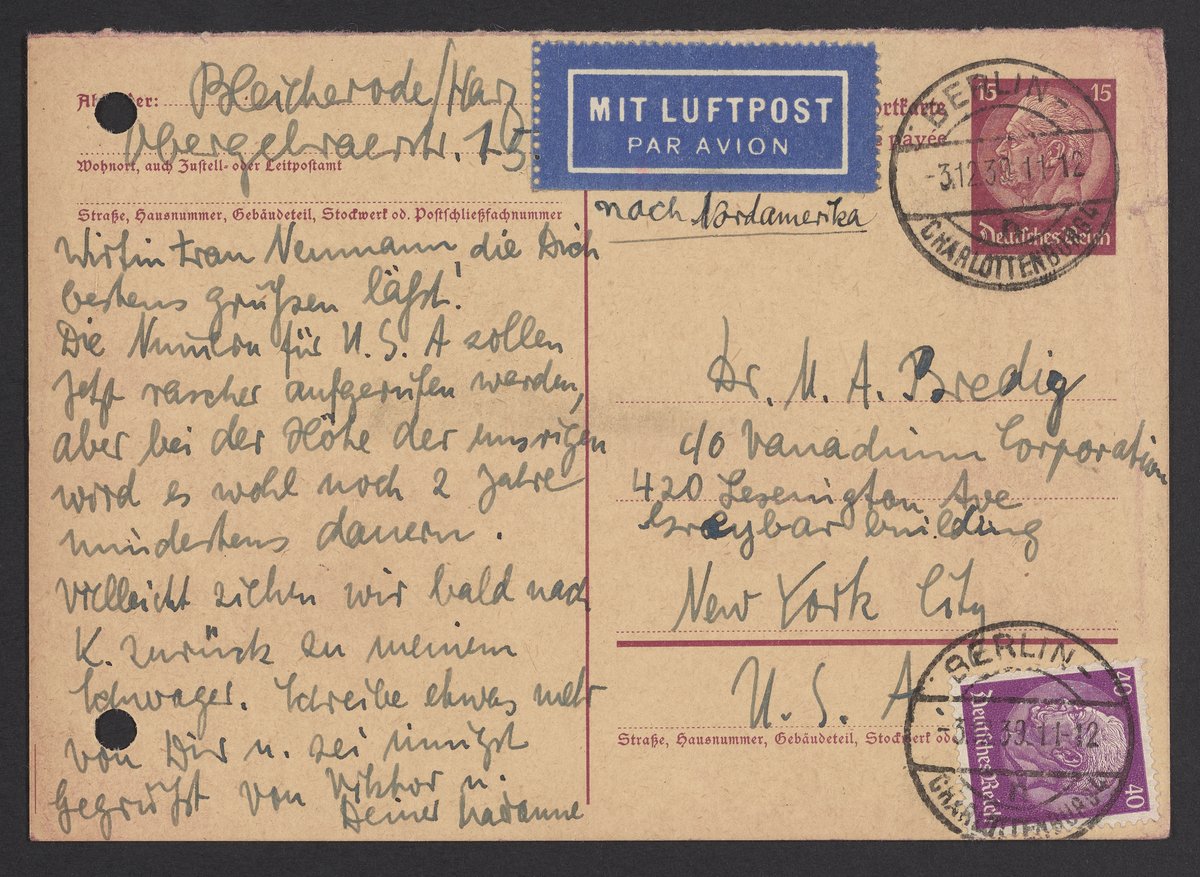 Absender:
Bleicherode/Harz
Obergebraerstr. 15
Wohnort, auch Zustell- oder Leitpostamt
Straße, Hausnummer, Gebäudeteil, Stockwerk od. Postschließfachnummer
MIT LUFTPOST
PAR AVION
nach Nordamerika
ortkarte
payée
15 15
Deutsches Reich
BERLIN-
-3.12.39.11-12
CHARLOTTENBURG 4
Wirtin Frau Neumann, die Dich
bestens grüßen läßt!
Die Numern für U.S.A sollen
jetzt rascher aufgerufen werden,
aber bei der Höhe der unsrigen
wird es wohl noch 2 Jahre
mindestens dauern.
Vielleicht ziehen wir bald nach
K. zurück zu meinem
Schwager. Schreibe etwas mehr
von Dir u. sei innigst
gegrüßt von Viktor u.
Deiner Marianne
Dr. M. A. Bredig
c/o Vanadium Corporation
420 Lexenigton Ave
Greybar building
New York City
U.S.A
Straße, Hausnummer, Gebäudeteil, Stockwerk od
BERLIN-
-3. .39.11-12
CHARLOTTENBURG 4
40
Deutsches Reich
40